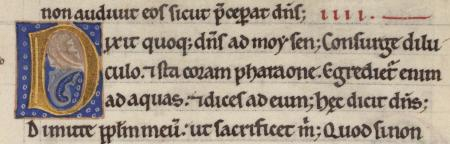 non audiuit eos sicut p̄ceperat dn̄s; IIII.
Dixit quoq; dn̄s ad moysen; Consurge dilu
culo. ⁊ sta coram pharaone. Egrediet᷑ enim
ad aquas. ⁊ dices ad eum; hęc dicit dn̄s;
Dimitte pp̄lm meū. ut sacrificet m̄; Quod si non